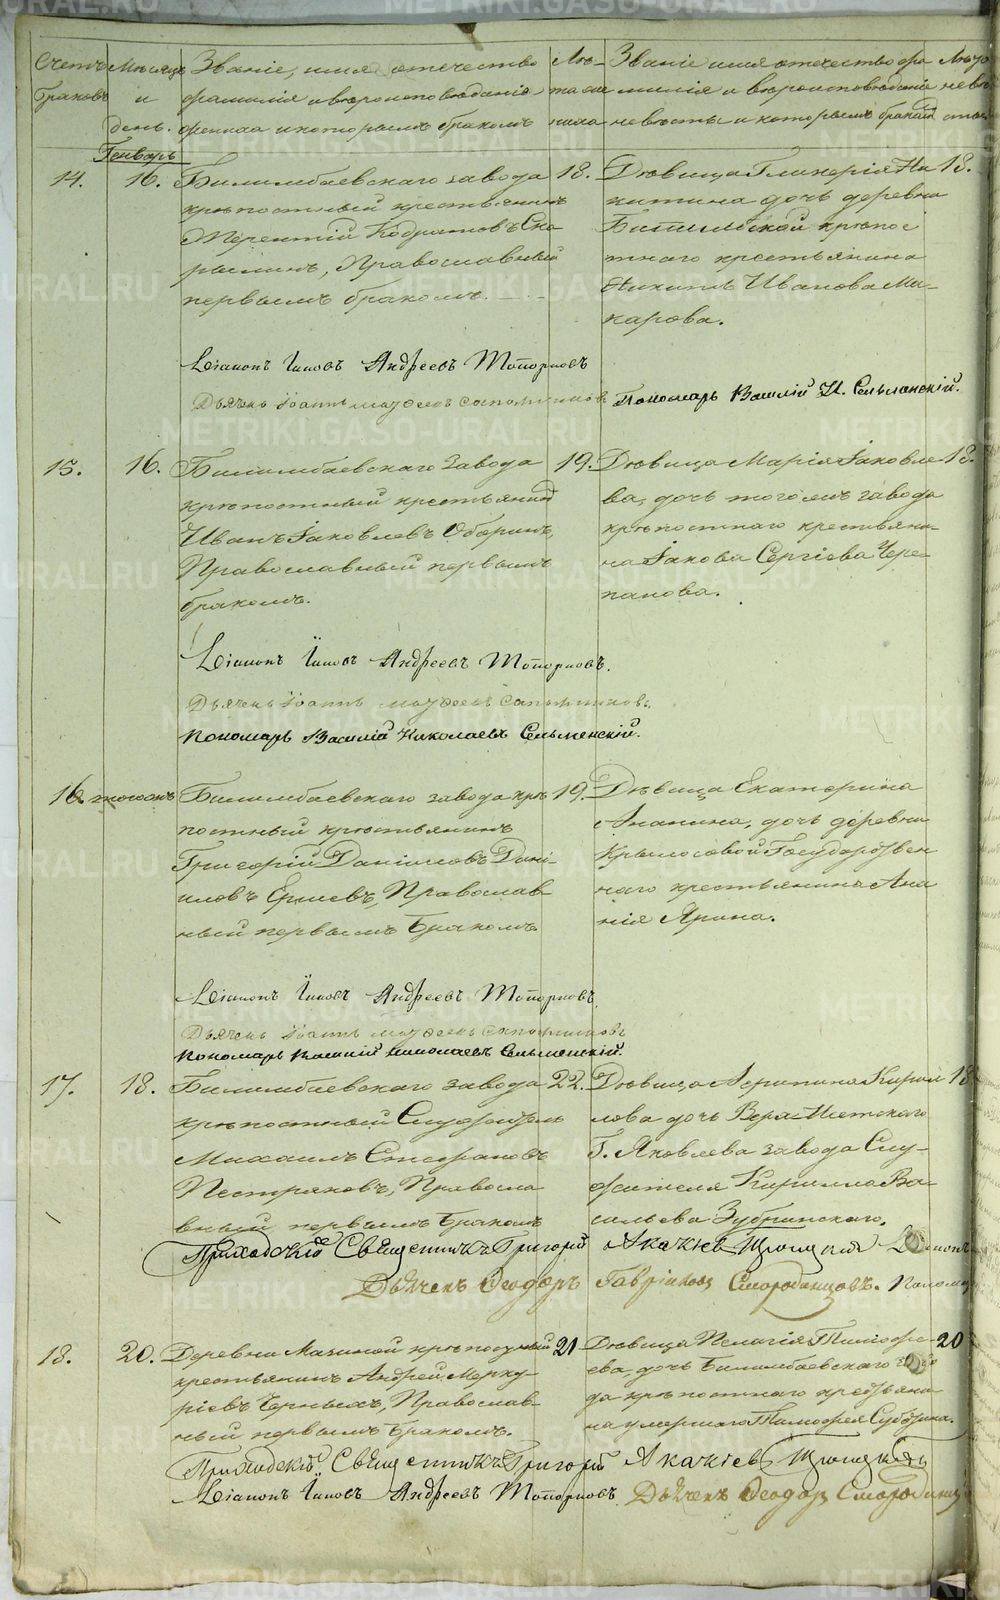 Счетъ браковъ
Мѣсяцъ и день.
Званіе, имя отечество
фамилія и вѣроисповѣданіе
жениха и которымъ бракомъ
Лѣта же ниха
Званіе имя отечество фа
милія и вѣроисповѣданіе
невѣсты и которымъ бракомъ
Генварь
14. 16. Билимбаевскаго завода 18.
крѣпостный крестьянинъ
Терентій Кодратовъ Ско
рынинъ, Православный
первымъ бракомъ.
Дѣвица Гликерія Ни 18.
китина дочь деревни
крѣпос
тнаго крестьянина
Никиты Иванова Ма-
карова.
Діаконъ Іаковъ Андреевъ Топорковъ
Дьячекъ Іоаннъ Сапожниковъ
Пономарь Василій Н. Сельменскій.
15. 16. Билимбаевскаго завода 19.
крѣпостный крестьянинъ
Иванъ Іаковлевъ Оборинъ,
Православный первымъ
бракомъ.
Дѣвица Марія Іаковле 18.
ва, дочь тогожъ завода
крѣпостнаго крестьяни-
на Іакова Сергіева Чере-
панова.
Діаконъ Іаковъ Андреевъ Топорковъ.
Дьячекъ Іоаннъ Сапожниковъ.
Пономарь Василій Николаевъ Сельменскій.
16. тогожъ Билимбаевскаго завода крѣ 19.
постный крестьянинъ
Григорій Даніиловъ Дані-
иловъ Ершевъ, Православ
ный первымъ бракомъ
Дѣвица Екатерина
Ананина, дочь деревни
Крылосовой Государствен
наго крестьянина Ана
нія Ярина.
Діаконъ Іаковъ Андреевъ Топорковъ.
Дьячекъ Іоаннъ Сапожниковъ
Пономарь Василій Николаевъ Сельменскій.
17. 18. Билимбаевскаго завода 22.
крѣпостный Служитель
Михаилъ Стефановъ
Пестряковъ, Правосла
вный первымъ бракомъ
Дѣвица Агрипина Кирил 18
лова дочь Верх-Исетскаго
Г. Яковлева завода Слу-
жителя Кирилла Ва-
сильева Зубринскаго.
Приходскій Священникъ Григорій Акакіев Троицкій Діаконъ
Дьячекъ Ѳеодоръ Гавріиловъ Смородинцовъ. Пономарь
18. 20. Деревни Махиной крѣпостный 21
крестьянинъ Андрей Мерку-
ріевъ Черныхъ, Православ-
ный первымъ бракомъ.
Дѣвица Пелагія Тимофе- 20
ева, дочь Билимбаевскаго заво
да крѣпостнаго крестьяни-
на умершаго Тимофея Субботина.
Приходскій Священникъ Григорій Акакіевъ Троицкій
Діаконъ Іаковъ Андреевъ Топорковъ Дьячекъ Ѳеодоръ Смородинц
METRIKI.GASO-URAL.RU